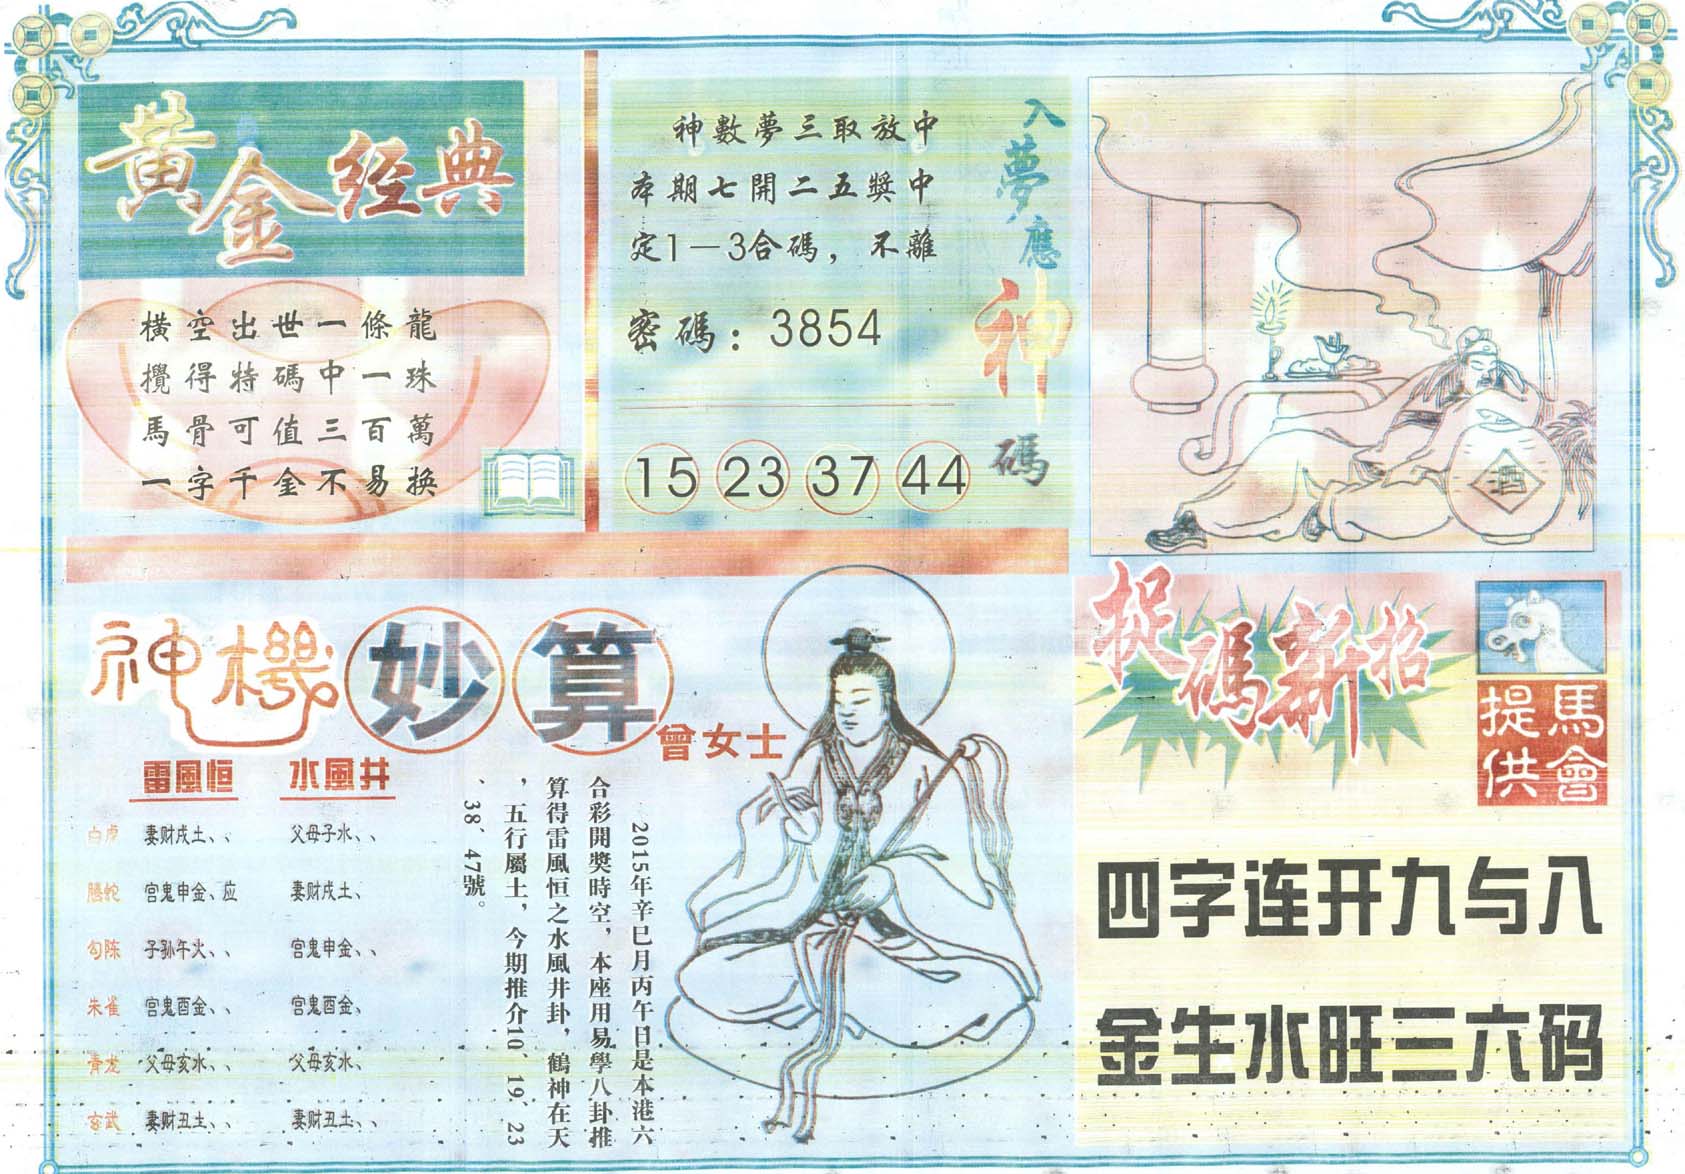 黃金经典
橫空出世一條龍
攪得特碼中一珠
馬骨可值三百萬
一字千金不易换
神數夢三取放中
本期七開二五獎中
定1－3合碼，不離
密碼：3854
15 23 37 44
入夢應神碼
酒
神機妙算
曾女士
雷風恒 水風井
白虎 妻财戌土、、 父母子水、、
腾蛇 宫鬼申金、应 妻财戌土、
勾陈 子孙午火、、 宫鬼申金、、
朱雀 宫鬼酉金、、 宫鬼酉金、
青龙 父母亥水、、 父母亥水、
玄武 妻财丑土、、 妻财丑土、、
2015年辛巳月丙午日是本港六
合彩開獎時空，本座用易學八卦推
算得雷風恒之水風井卦，鶴神在天
，五行屬土，今期推介10、19、23
、38、47號。
捉碼新招
馬會
提供
四字连开九与八
金生水旺三六码